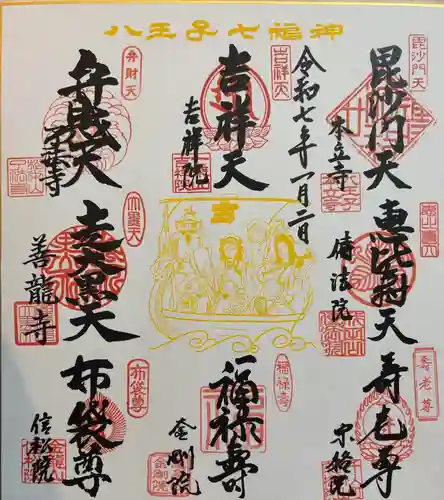 八王子七福神
毘沙門天
毘沙門天
本立寺
令和七年一月二日
吉祥天
吉祥天
吉祥院
弁財天
弁財天
了法寺
恵比寿天
傳法院
大黒天
走大黒天
善龍寺
寿老尊
寿老尊
宗格院
福禄寿
福禄寿
金剛院
布袋尊
布袋尊
信松院